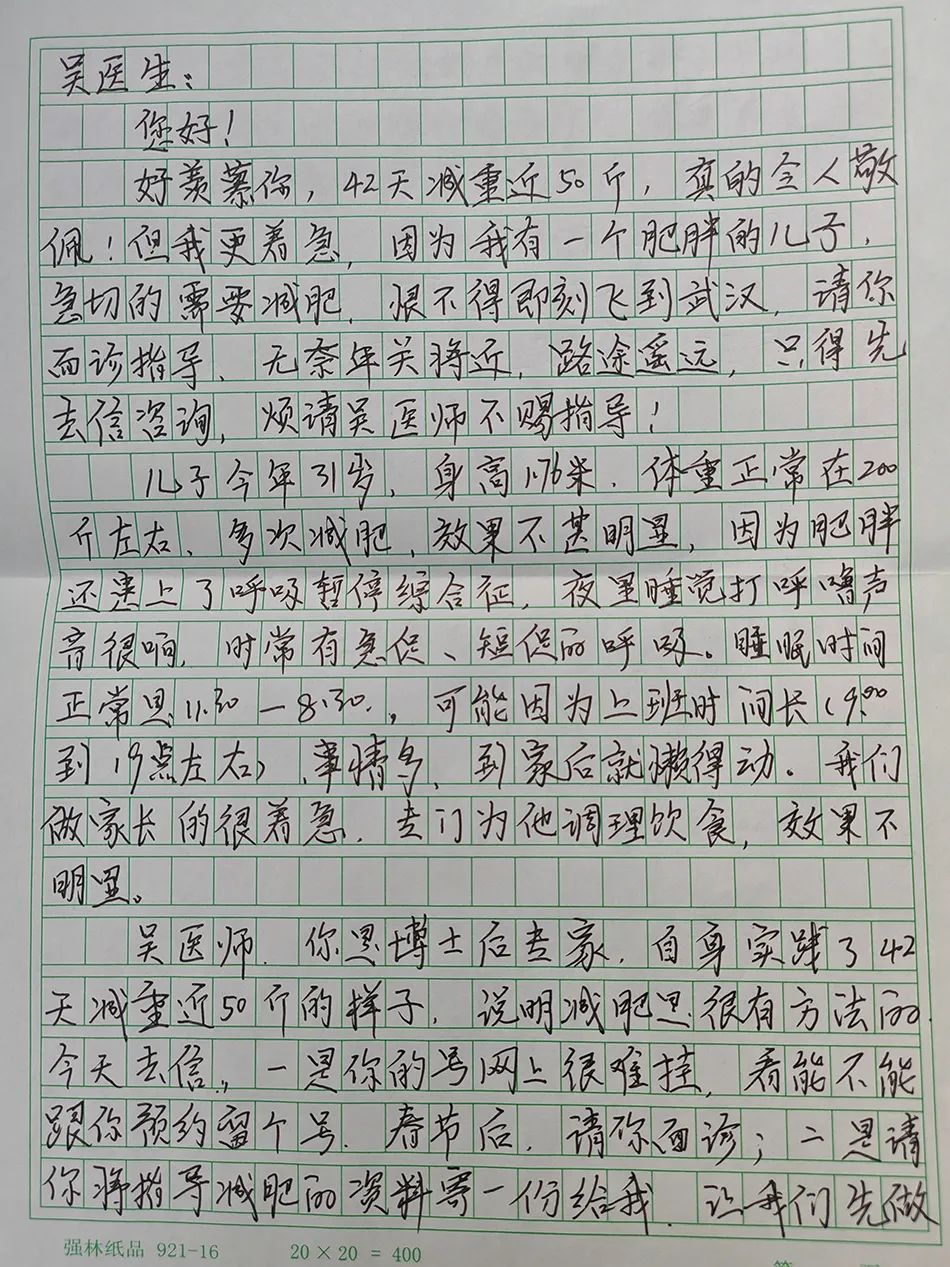 吴医生：
您好！
好羡慕你，42天减重近50斤，真的令人敬
佩！但我更着急，因为我有一个肥胖的儿子，
急切的需要减肥，恨不得即刻飞到武汉，请你
面诊指导，无奈年关将近，路途遥远，只得先
去信咨询，烦请吴医师不赐指导！
儿子今年31岁，身高1.76米，体重正常在200
斤左右、多次减肥，效果不甚明显，因为肥胖
还患上了呼吸暂停综合征，夜里睡觉打呼噜声
音很响，时常有急促、短促的呼吸。睡眠时间
正常是11:30—8:30，可能因为上班时间长（9:00
到19点左右），事情多，到家后就懒得动。我们
做家长的很着急，专门为他调理饮食，效果不
明显。
吴医师，你是博士后专家，自身实践了42
天减重近50斤的样子，说明减肥是很有方法的。
今天去信，一是你的号网上很难挂，看能不能
跟你预约留个号，春节后，请你面诊；二是请
你将指导减肥的资料寄一份给我，让我们先做
强林纸品 921-16 20×20=400